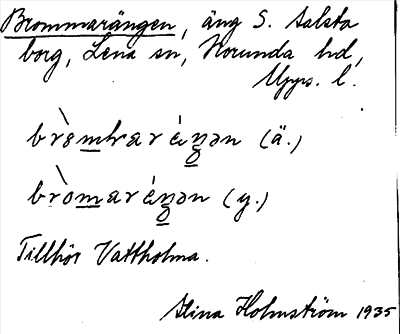 Brommarängen, äng S. Salsta
borg, Lena sn, Norunda hd,
Upps. l.
(ä.)
(y.)
Tillhör Vattholma.
Stina Holmström 1935